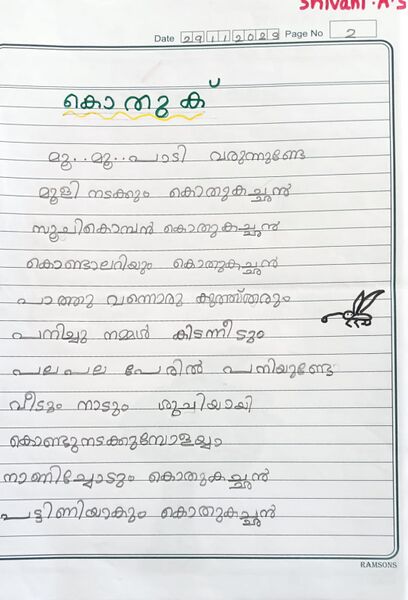 Shivani.A.S
Date 29 11 2023 Page No 2
കൊതുക്
മൂ..മൂ..പാടി വരുന്നുണ്ടേ
മൂളി നടക്കും കൊതുകച്ചൻ
സൂചികൊമ്പൻ കൊതുകച്ചൻ
കൊണ്ടാലറിയും കൊതുകച്ചൻ
പാത്തു വന്നൊരു കുത്ത്തരും
പനിച്ചു നമ്മൾ കിടന്നീടും
പല പല പേരിൽ പനിയുണ്ടേ
വീടും നാടും ശുചിയായി
കൊണ്ടുനടക്കുമ്പോളയ്യാ
നാണിച്ചോടും കൊതുകച്ചൻ
പട്ടിണിയാകും കൊതുകച്ചൻ
RAMSONS